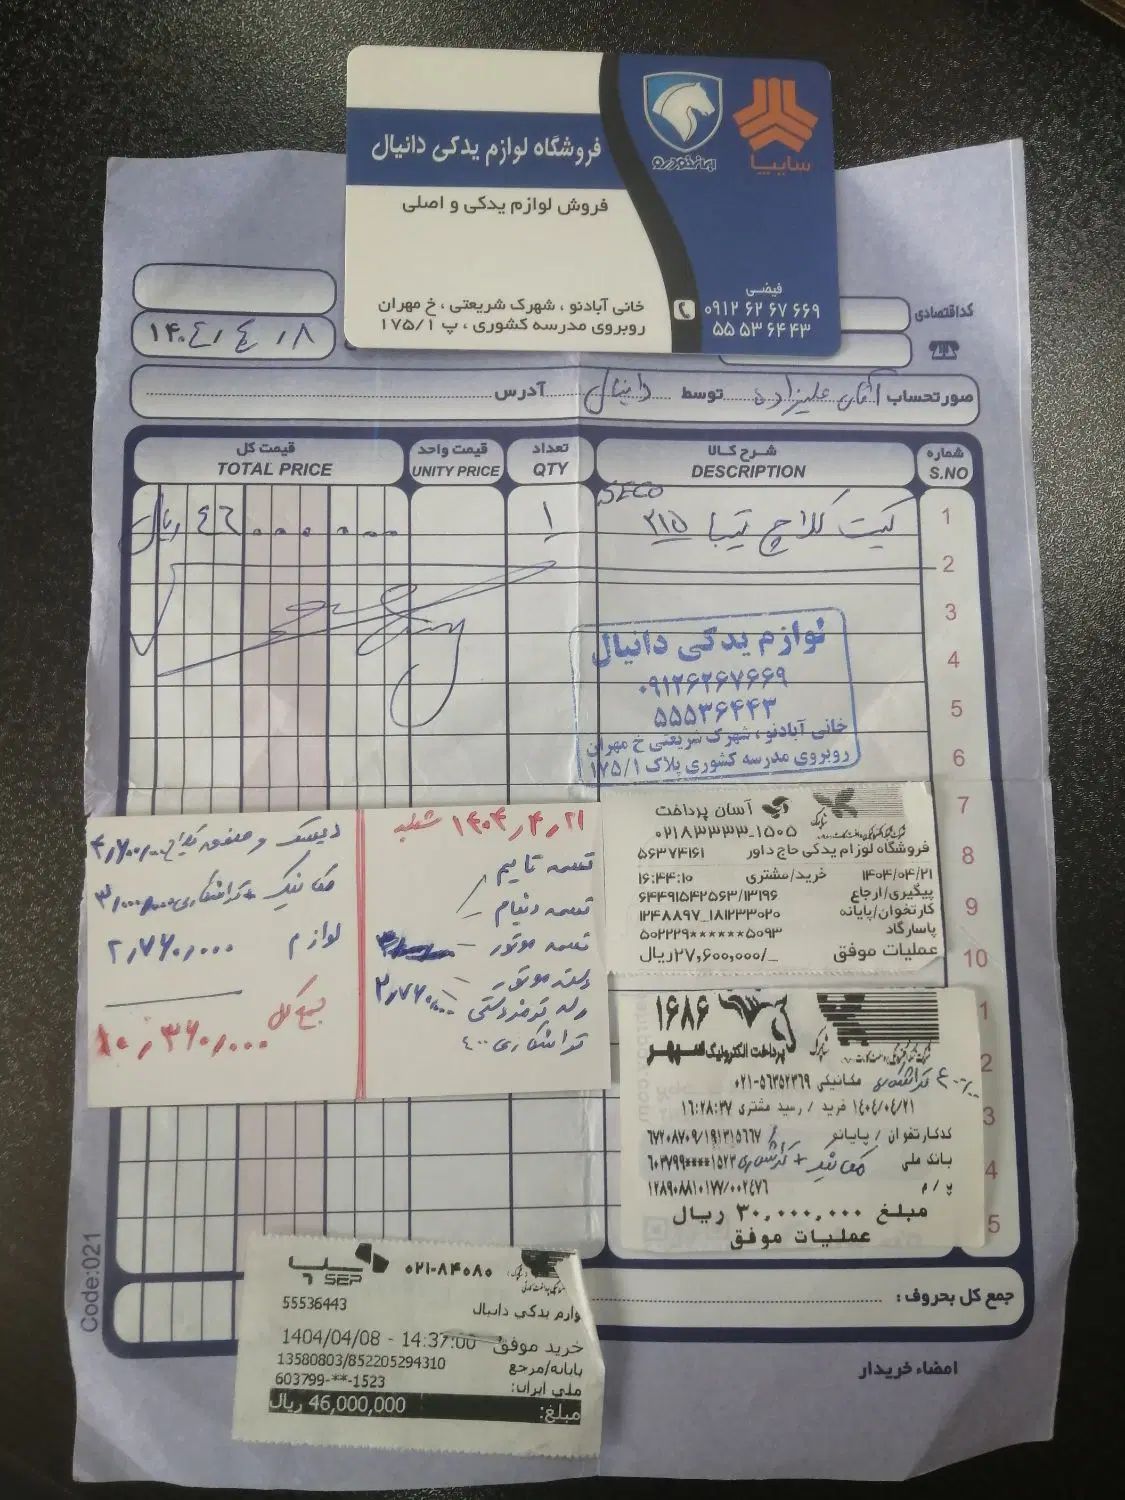 سایپا
ایران‌خودرو
فروشگاه لوازم یدکی دانیال
فروش لوازم یدکی و اصلی
خانی آبادنو ، شهرک شریعتی ، خ مهران
روبروی مدرسه کشوری ، پ ۱۷۵/۱
فیضی
۰۹۱۲ ۶۲ ۶۷ ۶۶۹
۵۵ ۵۳ ۶۴ ۴۳
کداقتصادی
۱۴۰۴/۴/۰۸
صورتحساب آقای علیزاده توسط دانیال آدرس
شماره شرح کالا تعداد قیمت واحد قیمت کل
S.NO DESCRIPTION QTY UNITY PRICE TOTAL PRICE
SECO
1 کیت کلاچ تیبا ۲۱۵ ۱ ۴۶۰۰۰۰۰۰ ریال
2
3
4
5
6
7
8
9
10
1
2
3
4
5
لوازم یدکی دانیال
۰۹۱۲۶۲۶۷۶۶۹
۵۵۵۳۶۴۴۳
خانی آبادنو ، شهرک شریعتی خ مهران
روبروی مدرسه کشوری پلاک ۱۷۵/۱
۱۴۰۴/۴/۲۱ شنبه
تسمه تایم
تسمه دینام
تسمه موتور
دسته موتور ۲,۷۶۰,۰۰۰
ترمزدستی
تراشکاری ۴۰۰
دیسک و صفحه کلاچ ۴,۶۰۰,۰۰۰
مکانیک + تراشکاری ۳,۰۰۰,۰۰۰
لوازم ۲,۷۶۰,۰۰۰
جمع کل ۱۰,۳۶۰,۰۰۰
آسان پرداخت
۰۲۱۸۳۳۳۳_۱۵۰۵
فروشگاه لوزام یدکی حاج داور ۵۶۳۷۴۱۶۱
۱۴۰۴/۰۴/۲۱ خرید/مشتری ۱۶:۴۴:۱۰
پیگیری/ارجاع ۶۴۴۹۱۵۴۲۵۶۳/۱۳۱۹۶
کارتخوان/پایانه ۱۲۴۸۸۹۷_۱۸۱۲۳۳۰۲۰
پاسارگاد ۵۰۲۲۲۹******۵۰۹۳
عملیات موفق ۲۷,۶۰۰,۰۰۰/_ریال
۱۶۸۶
پرداخت الکترونیک سپهر
مکانیکی ۰۲۱-۵۶۳۵۲۳۶۹
تراشکاری
۱۴۰۴/۰۴/۲۱ خرید / رسید مشتری ۱۶:۲۸:۳۷
کدکارتخوان / پایانه ۶۷۲۰۸۷۰۹/۱۹۱۳۱۵۶۶۷
بانک ملی ۶۰۳۷۹۹****۱۵۲۳
مکانیک + تراشکاری
پ / م ۱۲۸۹۰۸۸۱۰۱۷۷/۰۰۲۴۷۶
مبلغ ۳۰,۰۰۰,۰۰۰ ریال
عملیات موفق
سپ
SEP
۰۲۱-۸۴۰۸۰
لوازم یدکی دانیال 55536443
خرید موفق 1404/04/08 - 14:37:00
پایانه/مرجع 13580803/852205294310
ملی ایران: 603799-**-1523
مبلغ: 46,000,000 ریال
جمع کل بحروف :
امضاء خریدار
Code:021